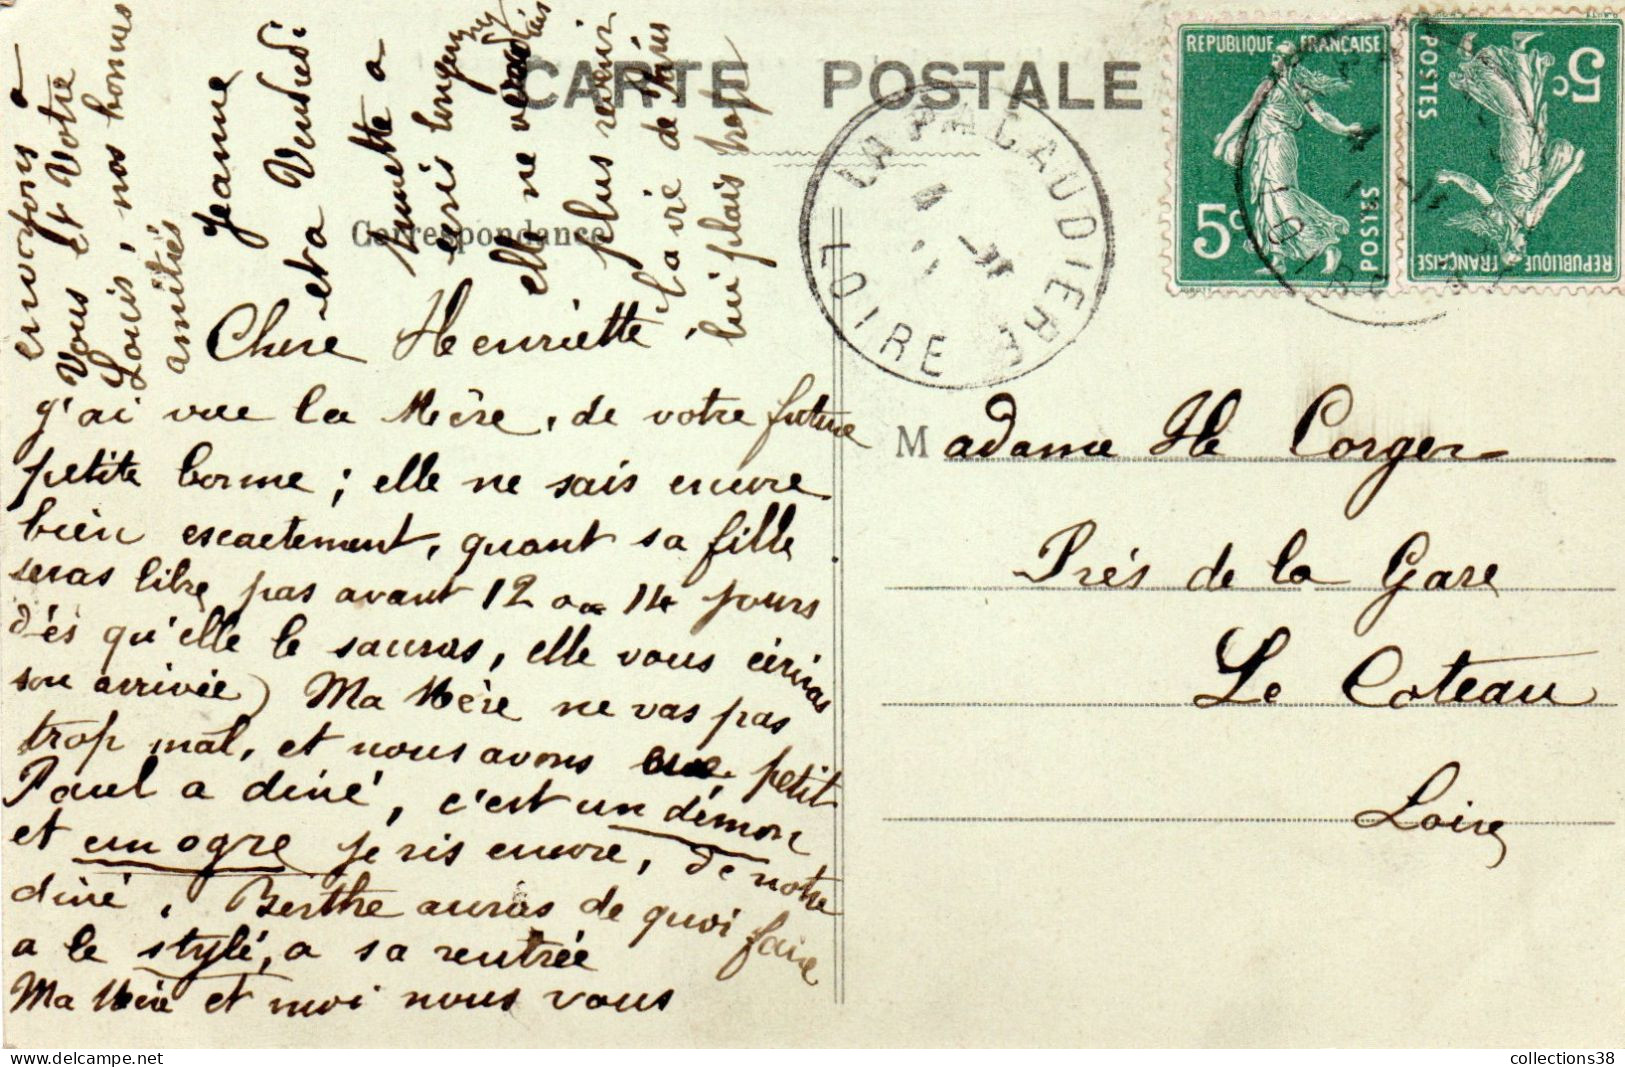 CARTE POSTALE
Correspondance
Chère Henriette,
j'ai vue la Mère, de votre future
petite bonne; elle ne sais encore
bien escactement, quant sa fille
seras libre, pas avant 12 ou 14 jours
dés qu'elle le sauras, elle vous ecriras
son arrivée) Ma Mère ne vas pas
trop mal, et nous avons eue, petit
Paul a diné, c'est un démon
et un ogre je ris encore, de notre
diné, Berthe auras de quoi faire
a le stylé, a sa rentrée
Ma Mère et moi nous vous
envoyons a
Vous et Votre
Louis, nos bonnes
amitiés
Jeanne
Vendredi
Annette a
écris
elle ne
plus revenir
la vie de Paris
lui plais trop
REPUBLIQUE FRANÇAISE
5c
POSTES
REPUBLIQUE FRANÇAISE
5c
POSTES
LA PACAUDIERE
4
LOIRE
LOIRE
Madame He Corger
Prés de la Gare
Le Coteau
Loire
collections38